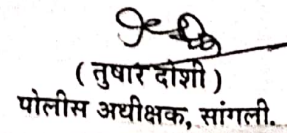 ( तुषार दोशी )
पोलीस अधीक्षक, सांगली.